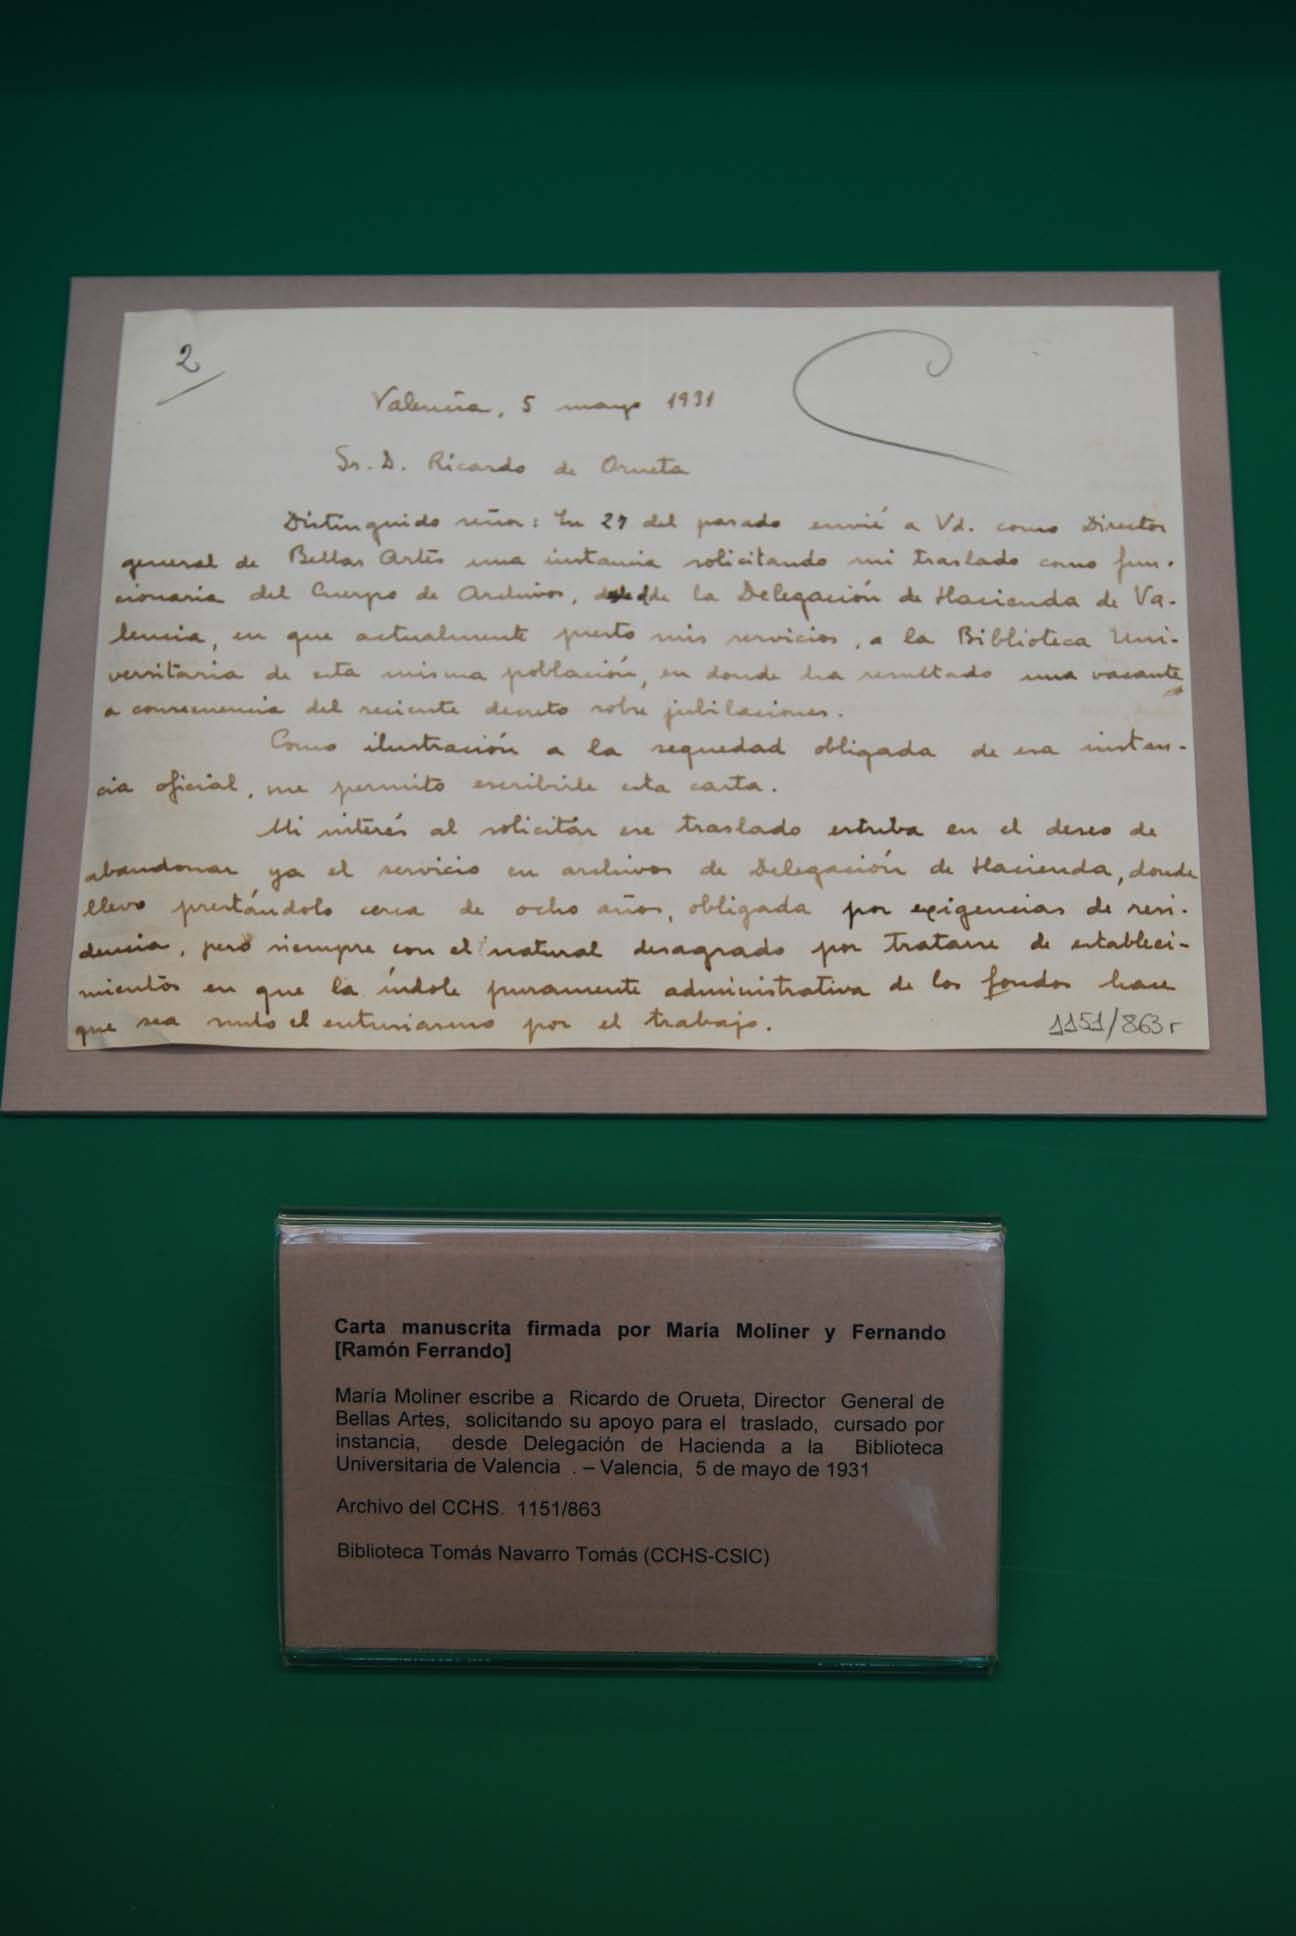 2
Valencia, 5 mayo 1931
Sr. D. Ricardo de Orueta
Distinguido señor: En 27 del pasado envié a Vd. como Director
general de Bellas Artes una instancia solicitando mi traslado como fun-
cionaria del Cuerpo de Archivos, desde la Delegación de Hacienda de Va-
lencia, en que actualmente presto mis servicios, a la Biblioteca Uni-
versitaria de esta misma población, en donde ha resultado una vacante
a consecuencia del reciente decreto sobre jubilaciones.
Como ilustración a la sequedad obligada de esa instan-
cia oficial, me permito escribirle esta carta.
Mi interés al solicitar ese traslado estriba en el deseo de
abandonar ya el servicio en archivos de Delegación de Hacienda, donde
llevo prestándolo cerca de ocho años, obligada por exigencias de resi-
dencia, pero siempre con el natural desagrado por tratarse de estableci-
mientos en que la índole puramente administrativa de los fondos hace
que sea nulo el entusiasmo por el trabajo.
1151/863r
Carta manuscrita firmada por María Moliner y Fernando
[Ramón Ferrando]
María Moliner escribe a Ricardo de Orueta, Director General de
Bellas Artes, solicitando su apoyo para el traslado, cursado por
instancia, desde Delegación de Hacienda a la Biblioteca
Universitaria de Valencia . – Valencia, 5 de mayo de 1931
Archivo del CCHS. 1151/863
Biblioteca Tomás Navarro Tomás (CCHS-CSIC)